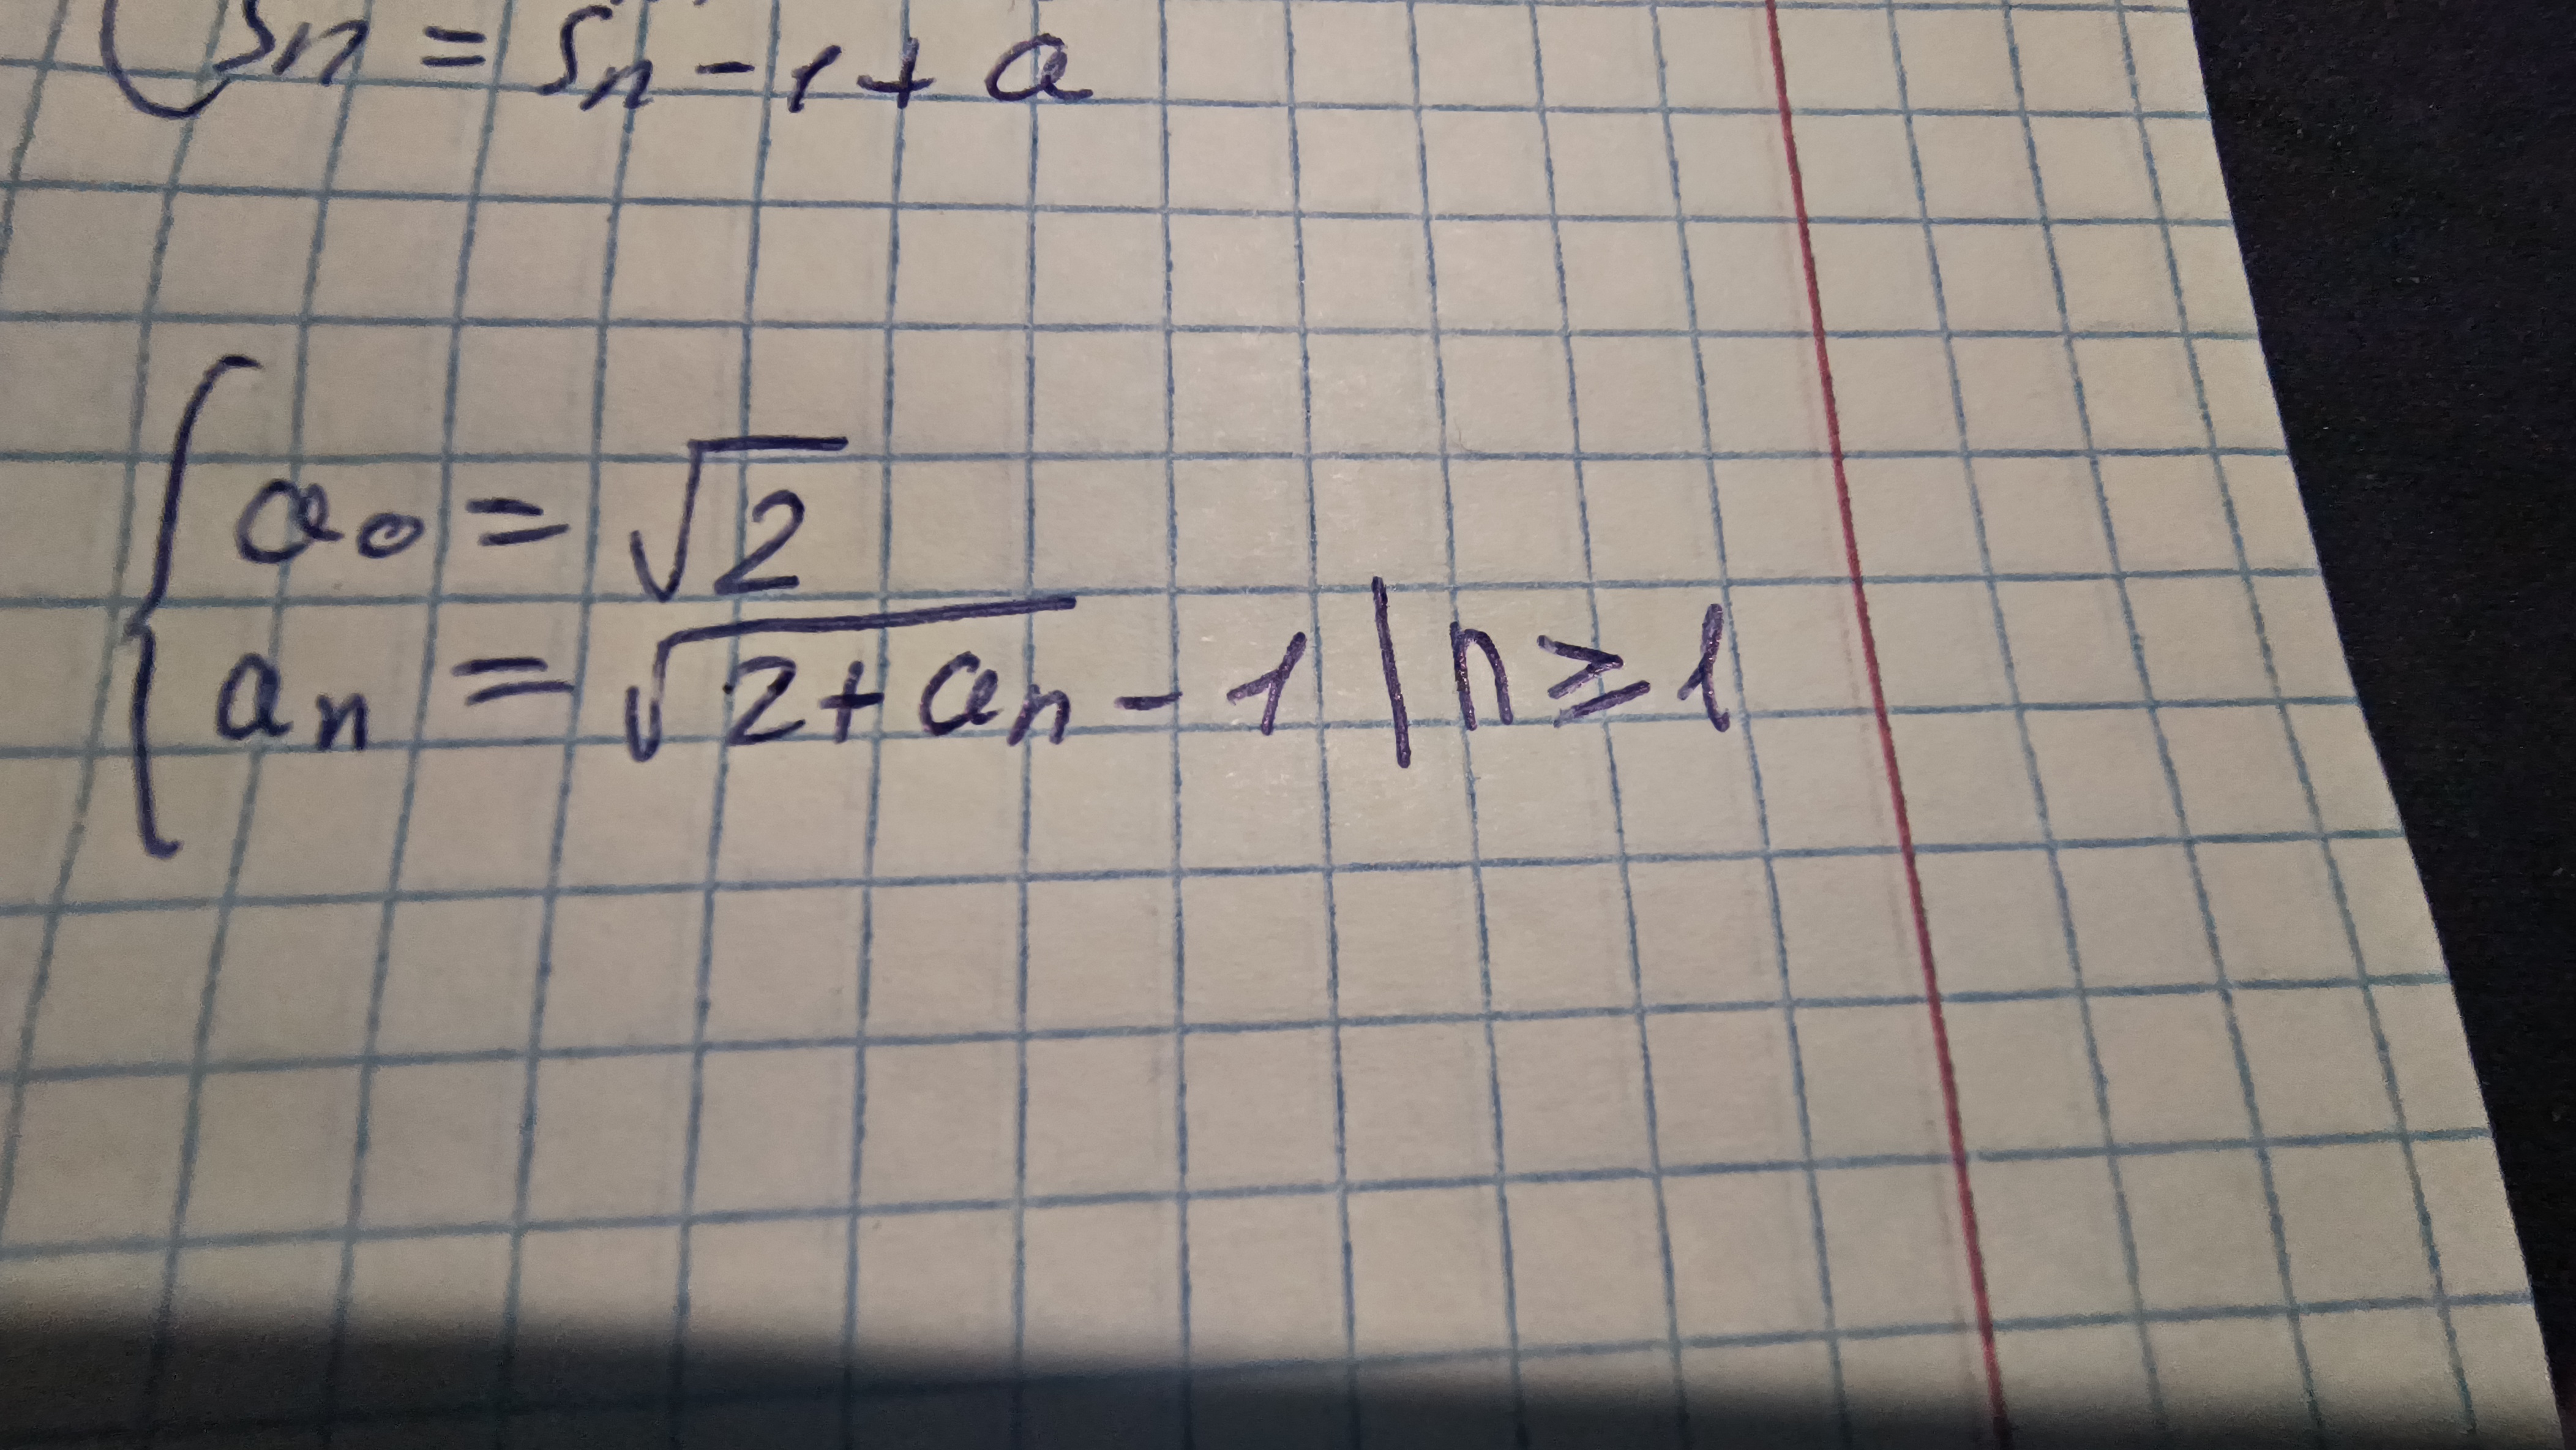 Sn = Sn - 1 + a
a0 = √2
an = √(2 + an) - 1 | n ≥ 1